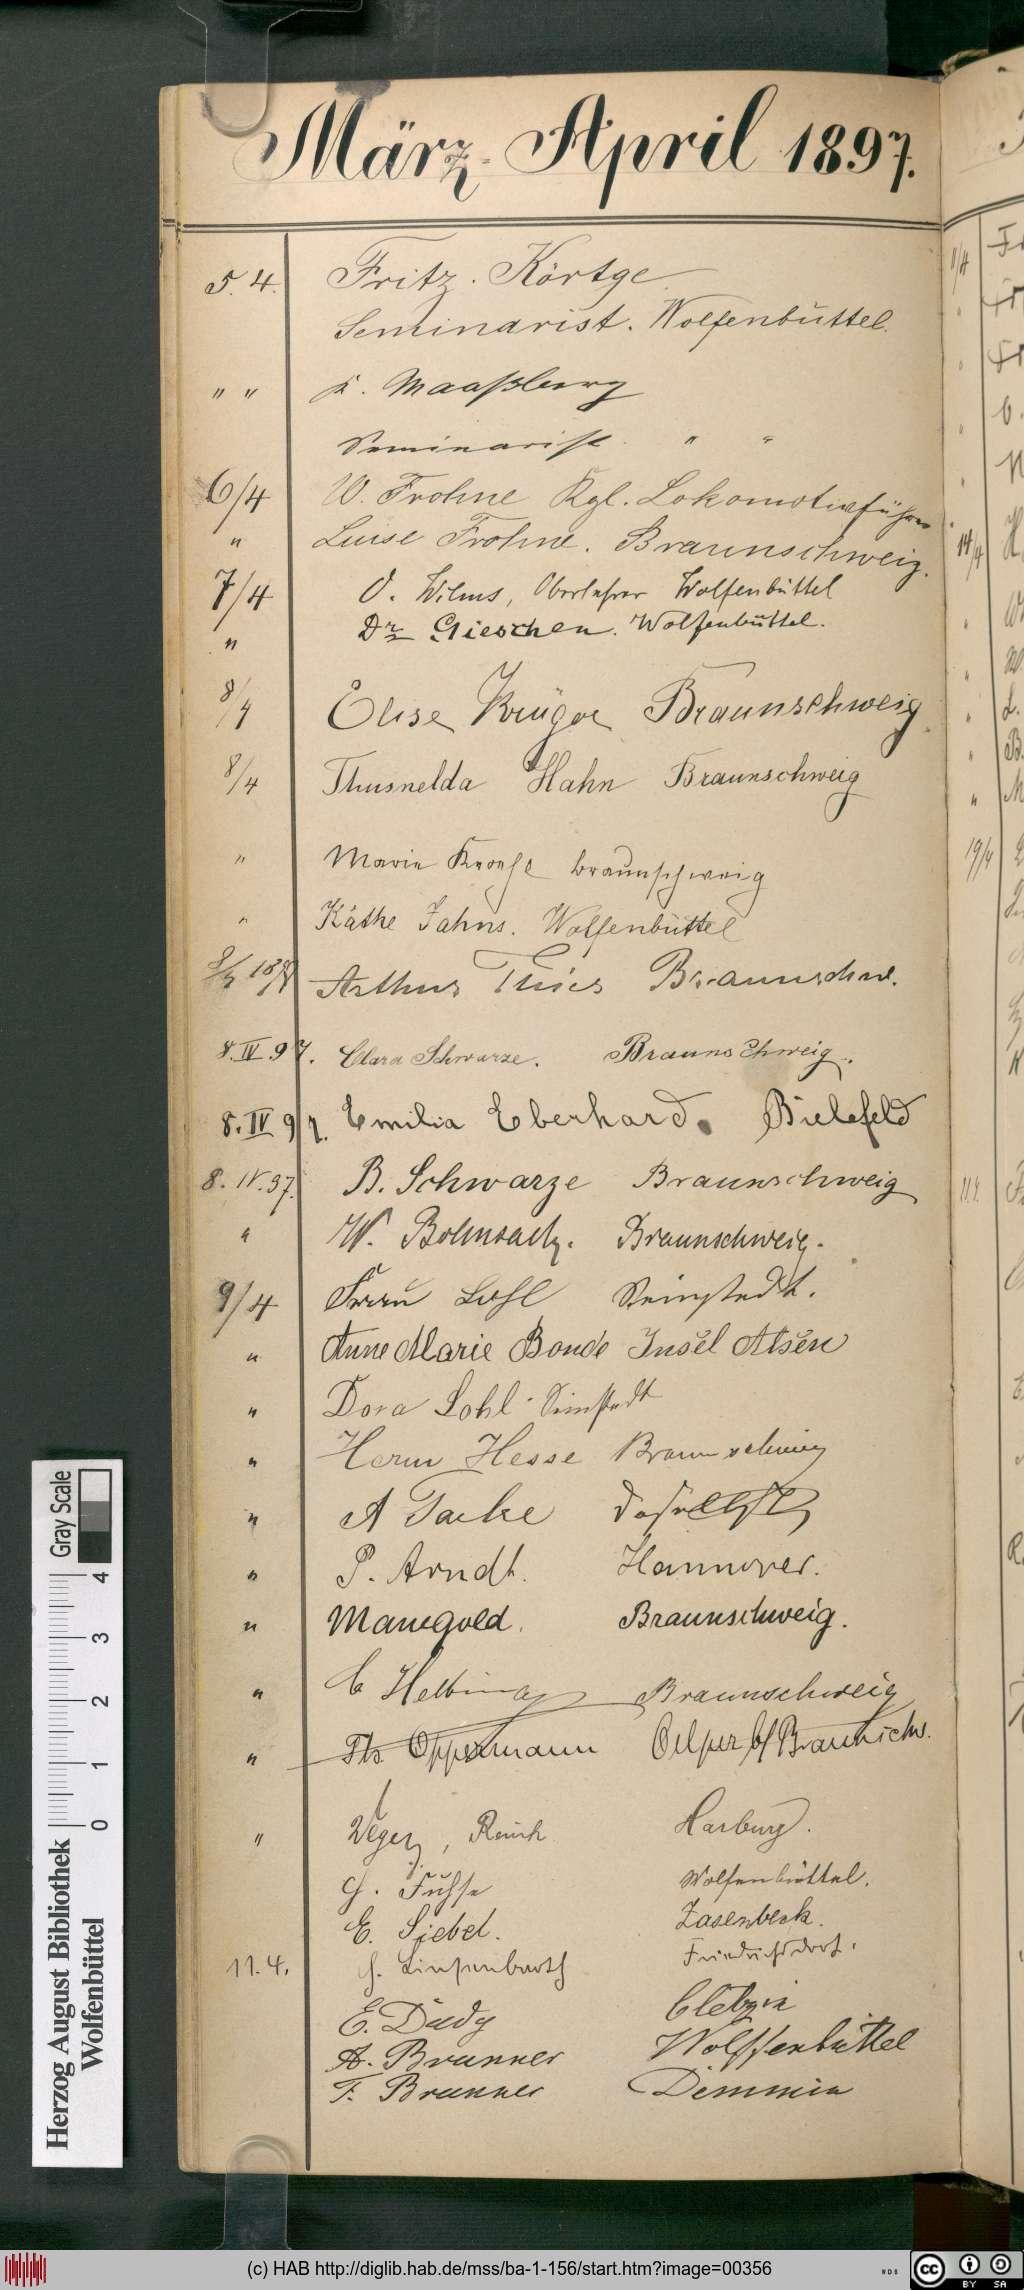 März-April 1897.
5. 4. Fritz. Körtge
Seminarist. Wolfenbüttel.
" " Maaßberg
Seminarist. " "
6/4 W. Frohne Kgl. Lokomotivführer
" Luise Frohne. Braunschweig.
7/4 O. Wilms, Oberlehrer Wolfenbüttel
" Dr. Gieschen. Wolfenbüttel.
8/4 Elise Krüger Braunschweig
8/4 Thusnelda Hahn Braunschweig
" Marie Braunschweig
" Käthe Jahns. Wolfenbüttel
Arthur Thies Braunschw.
8. IV 97. Clara Schwarze. Braunschweig.
8. IV 97. Emilia Eberhard. Bielefeld
8. IV. 97. B. Schwarze Braunschweig
" W. Bohnsack. Braunschweig.
9/4 Frau Lohl Seinstedt.
" Anne Marie Bonde Insel Alsen
" Dora Lohl Seinstedt
" Herm Hesse Braunschweig
" A Tacke daselbst
" P. Arndt. Hannover.
" Mannegold. Braunschweig.
" C Helbing Braunschweig
" Th Oppermann Oelper b/ Braunschw.
" Harburg.
G. Fuhse Wolfenbüttel.
E. Siebel. Zasenbeck.
11. 4. Linsenbarth Friedrichsdorf.
E. Dudy
A. Brunner Wolffenbüttel
F. Brunner Demmin
Herzog August Bibliothek
Wolfenbüttel
0 1 2 3 4
Gray Scale
(c) HAB http://diglib.hab.de/mss/ba-1-156/start.htm?image=00356
WDB
cc BY SA